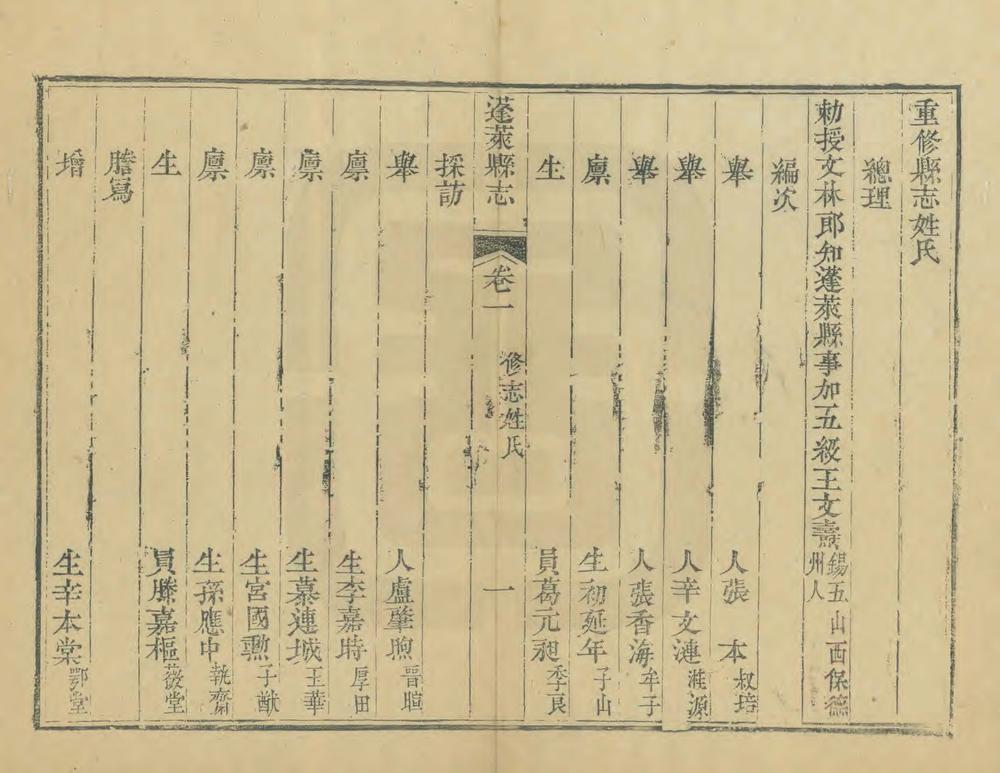 重修縣志姓氏
總理
勅授文林郎知蓬萊縣事加五級王文燾錫五山西保德州人
編次
舉人張本叔培
舉人辛文漣濰源
舉人張香海牟子
廪生初延年子山
生員葛元昶季良
蓬萊縣志
卷一
修志姓氏
一
採訪
舉人盧肇煦晋暄
廪生李嘉時厚田
廪生慕連城玉華
廪生宮國勲子猷
廪生孫應中執齋
生員滕嘉樞薇堂
謄寫
增生辛本棠鄂堂